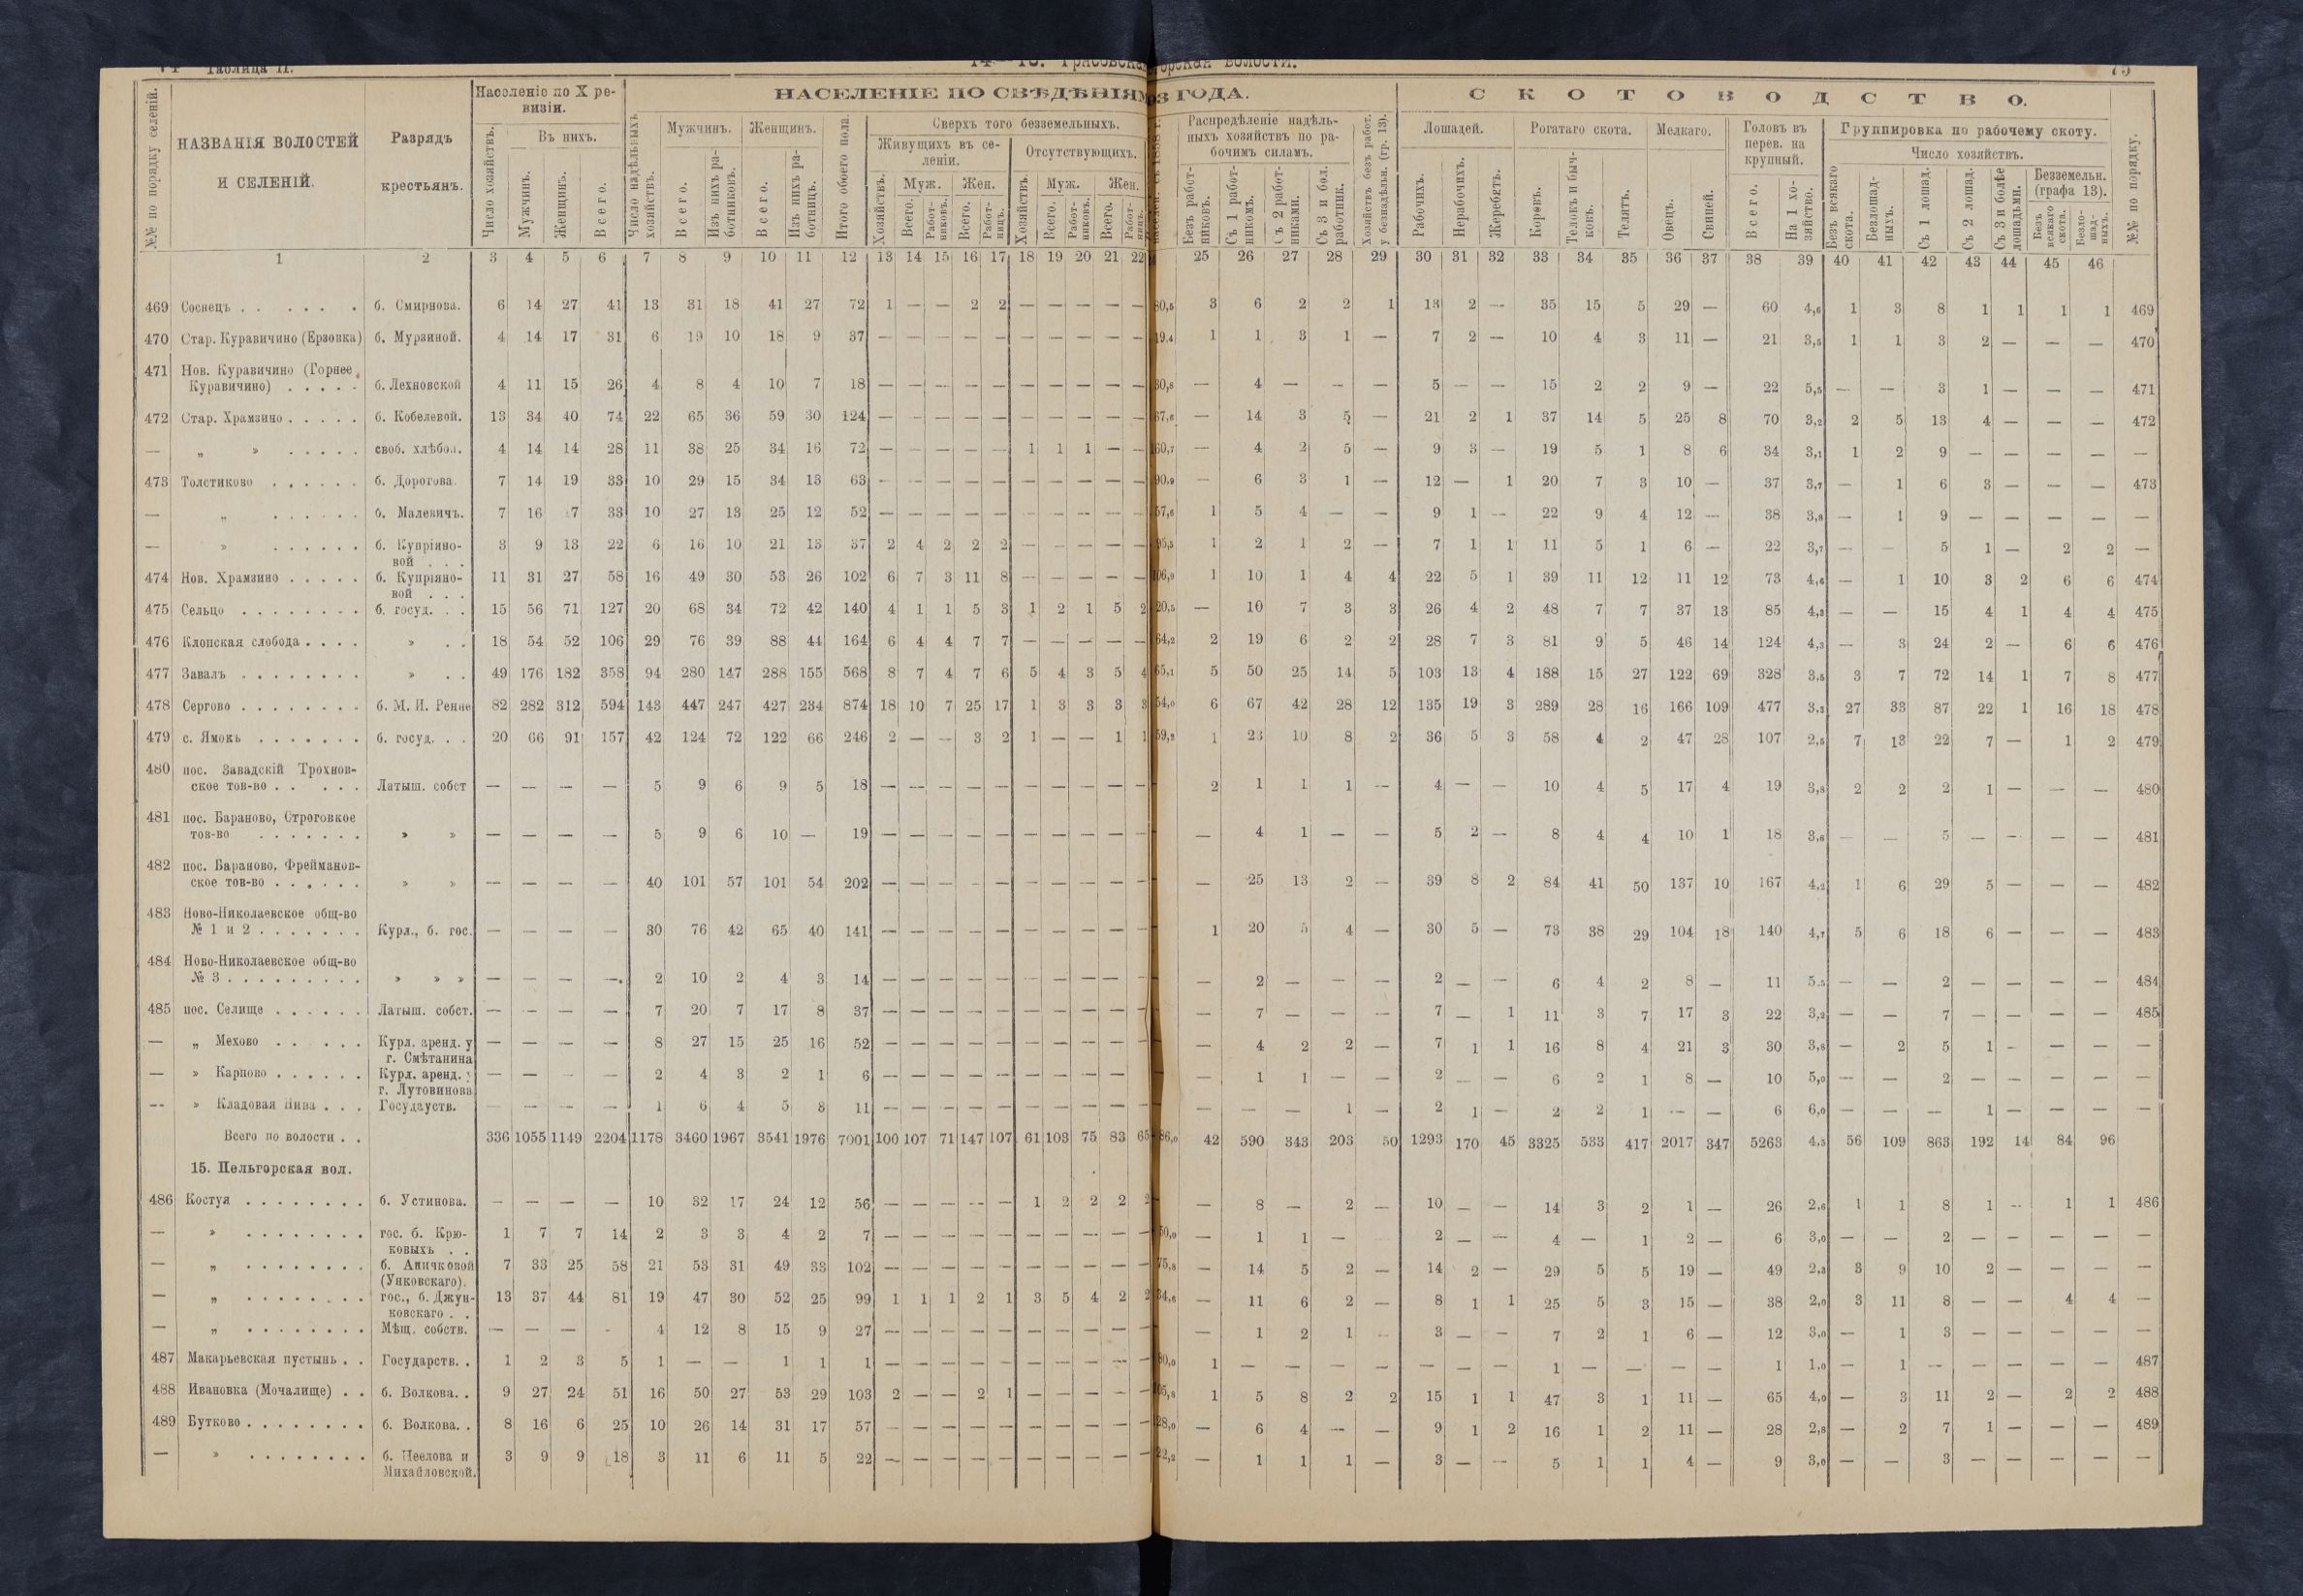 Таблица II.
НАЗВАНІЯ ВОЛОСТЕЙ И СЕЛЕНІЙ.
Разрядъ крестьянъ.
Населеніе по X ревизіи.
Число хозяйствъ.
Въ нихъ.
Мужчинъ.
Женщинъ.
Всего.
НАСЕЛЕНІЕ ПО СВѢДѢНІЯМ
3 ГОДА.
Мужчинъ.
Женщинъ.
Итого обоего пола.
Сверхъ того безземельныхъ.
Живущихъ въ селеніи.
Отсутствующихъ.
Муж.
Жен.
Муж.
Жен.
Распредѣленіе надѣльныхъ хозяйствъ по рабочимъ силамъ.
СКОТОВОДСТВО.
Лошадей.
Рогатаго скота.
Мелкаго.
Головъ въ перев. на крупный.
Группировка по рабочему скоту.
Число хозяйствъ.
Безземельн. (графа 13).
№№ по порядку.
1 2 3 4 5 6 7 8 9 10 11 12 13 14 15 16 17 18 19 20 21 22 25 26 27 28 29 30 31 32 33 34 35 36 37 38 39 40 41 42 43 44 45 46
469 Соснецъ . . . . . . б. Смирнова. 6 14 27 41 13 31 18 41 27 72 1 — — 2 2 — — — — — 3 6 2 2 1 13 2 — 35 15 5 29 — 60 4,6 1 3 8 1 1 1 1 469
470 Стар. Куравичино (Ерзовка) б. Мурзиной. 4 14 17 31 6 19 10 18 9 37 — — — — — — — — — — 1 1 3 1 — 7 2 — 10 4 3 11 — 21 3,5 1 1 3 2 — — — 470
471 Нов. Куравичино (Горнее
Куравичино) . . . . . б. Лехновской 4 11 15 26 4 8 4 10 7 18 — — — — — — — — — — — 4 — — — 5 — — 15 2 2 9 — 22 5,5 — — 3 1 — — — 471
472 Стар. Храмзино . . . . . б. Кобелевой. 13 34 40 74 22 65 36 59 30 124 — — — — — — — — — — — 14 3 5 — 21 2 1 37 14 5 25 8 70 3,2 2 5 13 4 — — — 472
— „ » . . . . . своб. хлѣбоп. 4 14 14 28 11 38 25 34 16 72 — — — — — 1 1 1 — — — 4 2 5 — 9 3 — 19 5 1 8 6 34 3,1 1 2 9 — — — — —
473 Толстиково . . . . . . б. Дорогова. 7 14 19 33 10 29 15 34 13 63 — — — — — — — — — — — 6 3 1 — 12 — 1 20 7 3 10 — 37 3,7 — 1 6 3 — — — 473
— „ . . . . . . б. Малевичъ. 7 16 17 33 10 27 13 25 12 52 — — — — — — — — — — 1 5 4 — — 9 1 — 22 9 4 12 — 38 3,8 — 1 9 — — — — —
— » . . . . . . б. Купріяно-
вой . . . 3 9 13 22 6 16 10 21 13 37 2 4 2 2 2 — — — — — 1 2 1 2 — 7 1 1 11 5 1 6 — 22 3,7 — — 5 1 — 2 2 —
474 Нов. Храмзино . . . . . б. Купріяно-
вой . . . 11 31 27 58 16 49 30 53 26 102 6 7 3 11 8 — — — — — 1 10 1 4 4 22 5 1 39 11 12 11 12 73 4,6 — 1 10 3 2 6 6 474
475 Сельцо . . . . . . . . б. госуд. . . 15 56 71 127 20 68 34 72 42 140 4 1 1 5 3 1 2 1 5 2 — 10 7 3 3 26 4 2 48 7 7 37 13 85 4,3 — — 15 4 1 4 4 475
476 Клопская слобода . . . . » . . 18 54 52 106 29 76 39 88 44 164 6 4 4 7 7 — — — — — 2 19 6 2 2 28 7 3 81 9 5 46 14 124 4,3 — 3 24 2 — 6 6 476
477 Завалъ . . . . . . . . » . . 49 176 182 358 94 280 147 288 155 568 8 7 4 7 6 5 4 3 5 4 5 50 25 14 5 103 13 4 188 15 27 122 69 328 3,5 3 7 72 14 1 7 8 477
478 Сергово . . . . . . . . б. М. И. Ренне 82 282 312 594 143 447 247 427 234 874 18 10 7 25 17 1 3 3 3 3 6 67 42 28 12 135 19 3 289 28 16 166 109 477 3,3 27 33 87 22 1 16 18 478
479 с. Ямокъ . . . . . . . б. госуд. . . 20 66 91 157 42 124 72 122 66 246 2 — — 3 2 1 — — 1 1 1 23 10 8 2 36 5 3 58 4 2 47 28 107 2,5 7 13 22 7 — 1 2 479
480 пос. Завадскій Трохнов-
ское тов-во . . . . . Латыш. собст — — — — 5 9 6 9 5 18 — — — — — — — — — — 2 1 1 1 — 4 — — 10 4 5 17 4 19 3,8 2 2 2 1 — — — 480
481 пос. Бараново, Строговкое
тов-во . . . . . . . » » — — — — 5 9 6 10 — 19 — — — — — — — — — — — 4 1 — — 5 2 — 8 4 4 10 1 18 3,6 — — 5 — — — — 481
482 пос. Бараново, Фрейманов-
ское тов-во . . . . . . » » — — — — 40 101 57 101 54 202 — — — — — — — — — — — 25 13 2 — 39 8 2 84 41 50 137 10 167 4,2 1 6 29 5 — — — 482
483 Ново-Николаевское общ-во
№ 1 и 2 . . . . . . . Курл., б. гос. — — — — 30 76 42 65 40 141 — — — — — — — — — — 1 20 5 4 — 30 5 — 73 38 29 104 18 140 4,7 5 6 18 6 — — — 483
484 Ново-Николаевское общ-во
№ 3 . . . . . . . . . » » » — — — — 2 10 2 4 3 14 — — — — — — — — — — — 2 — — — 2 — — 6 4 2 8 — 11 5,5 — — 2 — — — — 484
485 пос. Селище . . . . . . Латыш. собст. — — — — 7 20 7 17 8 37 — — — — — — — — — — — 7 — — — 7 — 1 11 3 7 17 3 22 3,2 — — 7 — — — — 485
— „ Мехово . . . . . Курл. аренд. у
г. Смѣтанина — — — — 8 27 15 25 16 52 — — — — — — — — — — — 4 2 2 — 7 1 1 16 8 4 21 3 30 3,8 — 2 5 1 — — — —
— » Карпово . . . . . . Курл. аренд. у
г. Лутовинова — — — — 2 4 3 2 1 6 — — — — — — — — — — — 1 1 — — 2 — — 6 2 1 8 — 10 5,0 — — 2 — — — — —
— » Кладовая Нива . . . Государств. — — — — 1 6 4 5 3 11 — — — — — — — — — — — — — 1 — 2 1 — 2 2 1 — — 6 6,0 — — — 1 — — — —
Всего по волости . . 336 1055 1149 2204 1178 3460 1967 3541 1976 7001 100 107 71 147 107 61 103 75 83 65 42 590 343 203 50 1293 170 45 3325 533 417 2017 347 5263 4,5 56 109 863 192 14 84 96
15. Пельгорская вол.
486 Костуя . . . . . . . . б. Устинова. — — — — 10 32 17 24 12 56 — — — — — 1 2 2 2 2 — 8 — 2 — 10 — — 14 3 2 1 — 26 2,6 1 1 8 1 — 1 1 486
— » . . . . . . . . гос. б. Крю-
ковыхъ . . 1 7 7 14 2 3 3 4 2 7 — — — — — — — — — — — 1 1 — 2 — — 4 — 1 2 — 6 3,0 — — 2 — — — — —
— „ . . . . . . . . б. Аничковой
(Унковскаго). 7 33 25 58 21 53 31 49 33 102 — — — — — — — — — — — 14 5 2 — 14 2 — 29 5 5 19 — 49 2,3 3 9 10 2 — — — —
— „ . . . . . . . . гос., б. Джун-
ковскаго . . 13 37 44 81 19 47 30 52 25 99 1 1 1 2 1 3 5 4 2 2 — 11 6 2 — 8 1 1 25 5 3 15 — 38 2,0 3 11 8 — — 4 4 —
— „ . . . . . . . . Мѣщ. собств. — — — — 4 12 8 15 9 27 — — — — — — — — — — — 1 2 1 — 3 — — 7 2 1 6 — 12 3,0 — 1 3 — — — — —
487 Макарьевская пустынь . . Государств. . 1 2 3 5 1 — — 1 1 1 — — — — — — — — — — 1 — — — — — — — 1 — — — — 1 1,0 — 1 — — — — — 487
488 Ивановка (Мочалище) . . б. Волкова. . 9 27 24 51 16 50 27 53 29 103 2 — — 2 1 — — — — — 1 5 8 2 2 15 1 1 47 3 1 11 — 65 4,0 — 3 11 2 — 2 2 488
489 Бутково . . . . . . . . б. Волкова. . 8 16 6 25 10 26 14 31 17 57 — — — — — — — — — — — 6 4 — — 9 1 2 16 1 2 11 — 28 2,8 — 2 7 1 — — — 489
— » . . . . . . . . б. Неелова и
Михайловской. 3 9 9 18 3 11 6 11 5 22 — — — — — — — — — — — 1 1 1 — 3 — — 5 1 1 4 — 9 3,0 — — 3 — — — — —